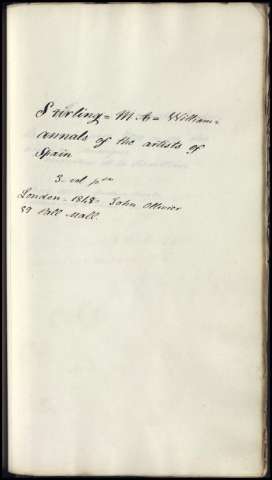 Stirling = M. A. = William =
annals of the artists of
Spain
3 - vol pta
London - 1848 - John Ollivier
59 Pall Mall.